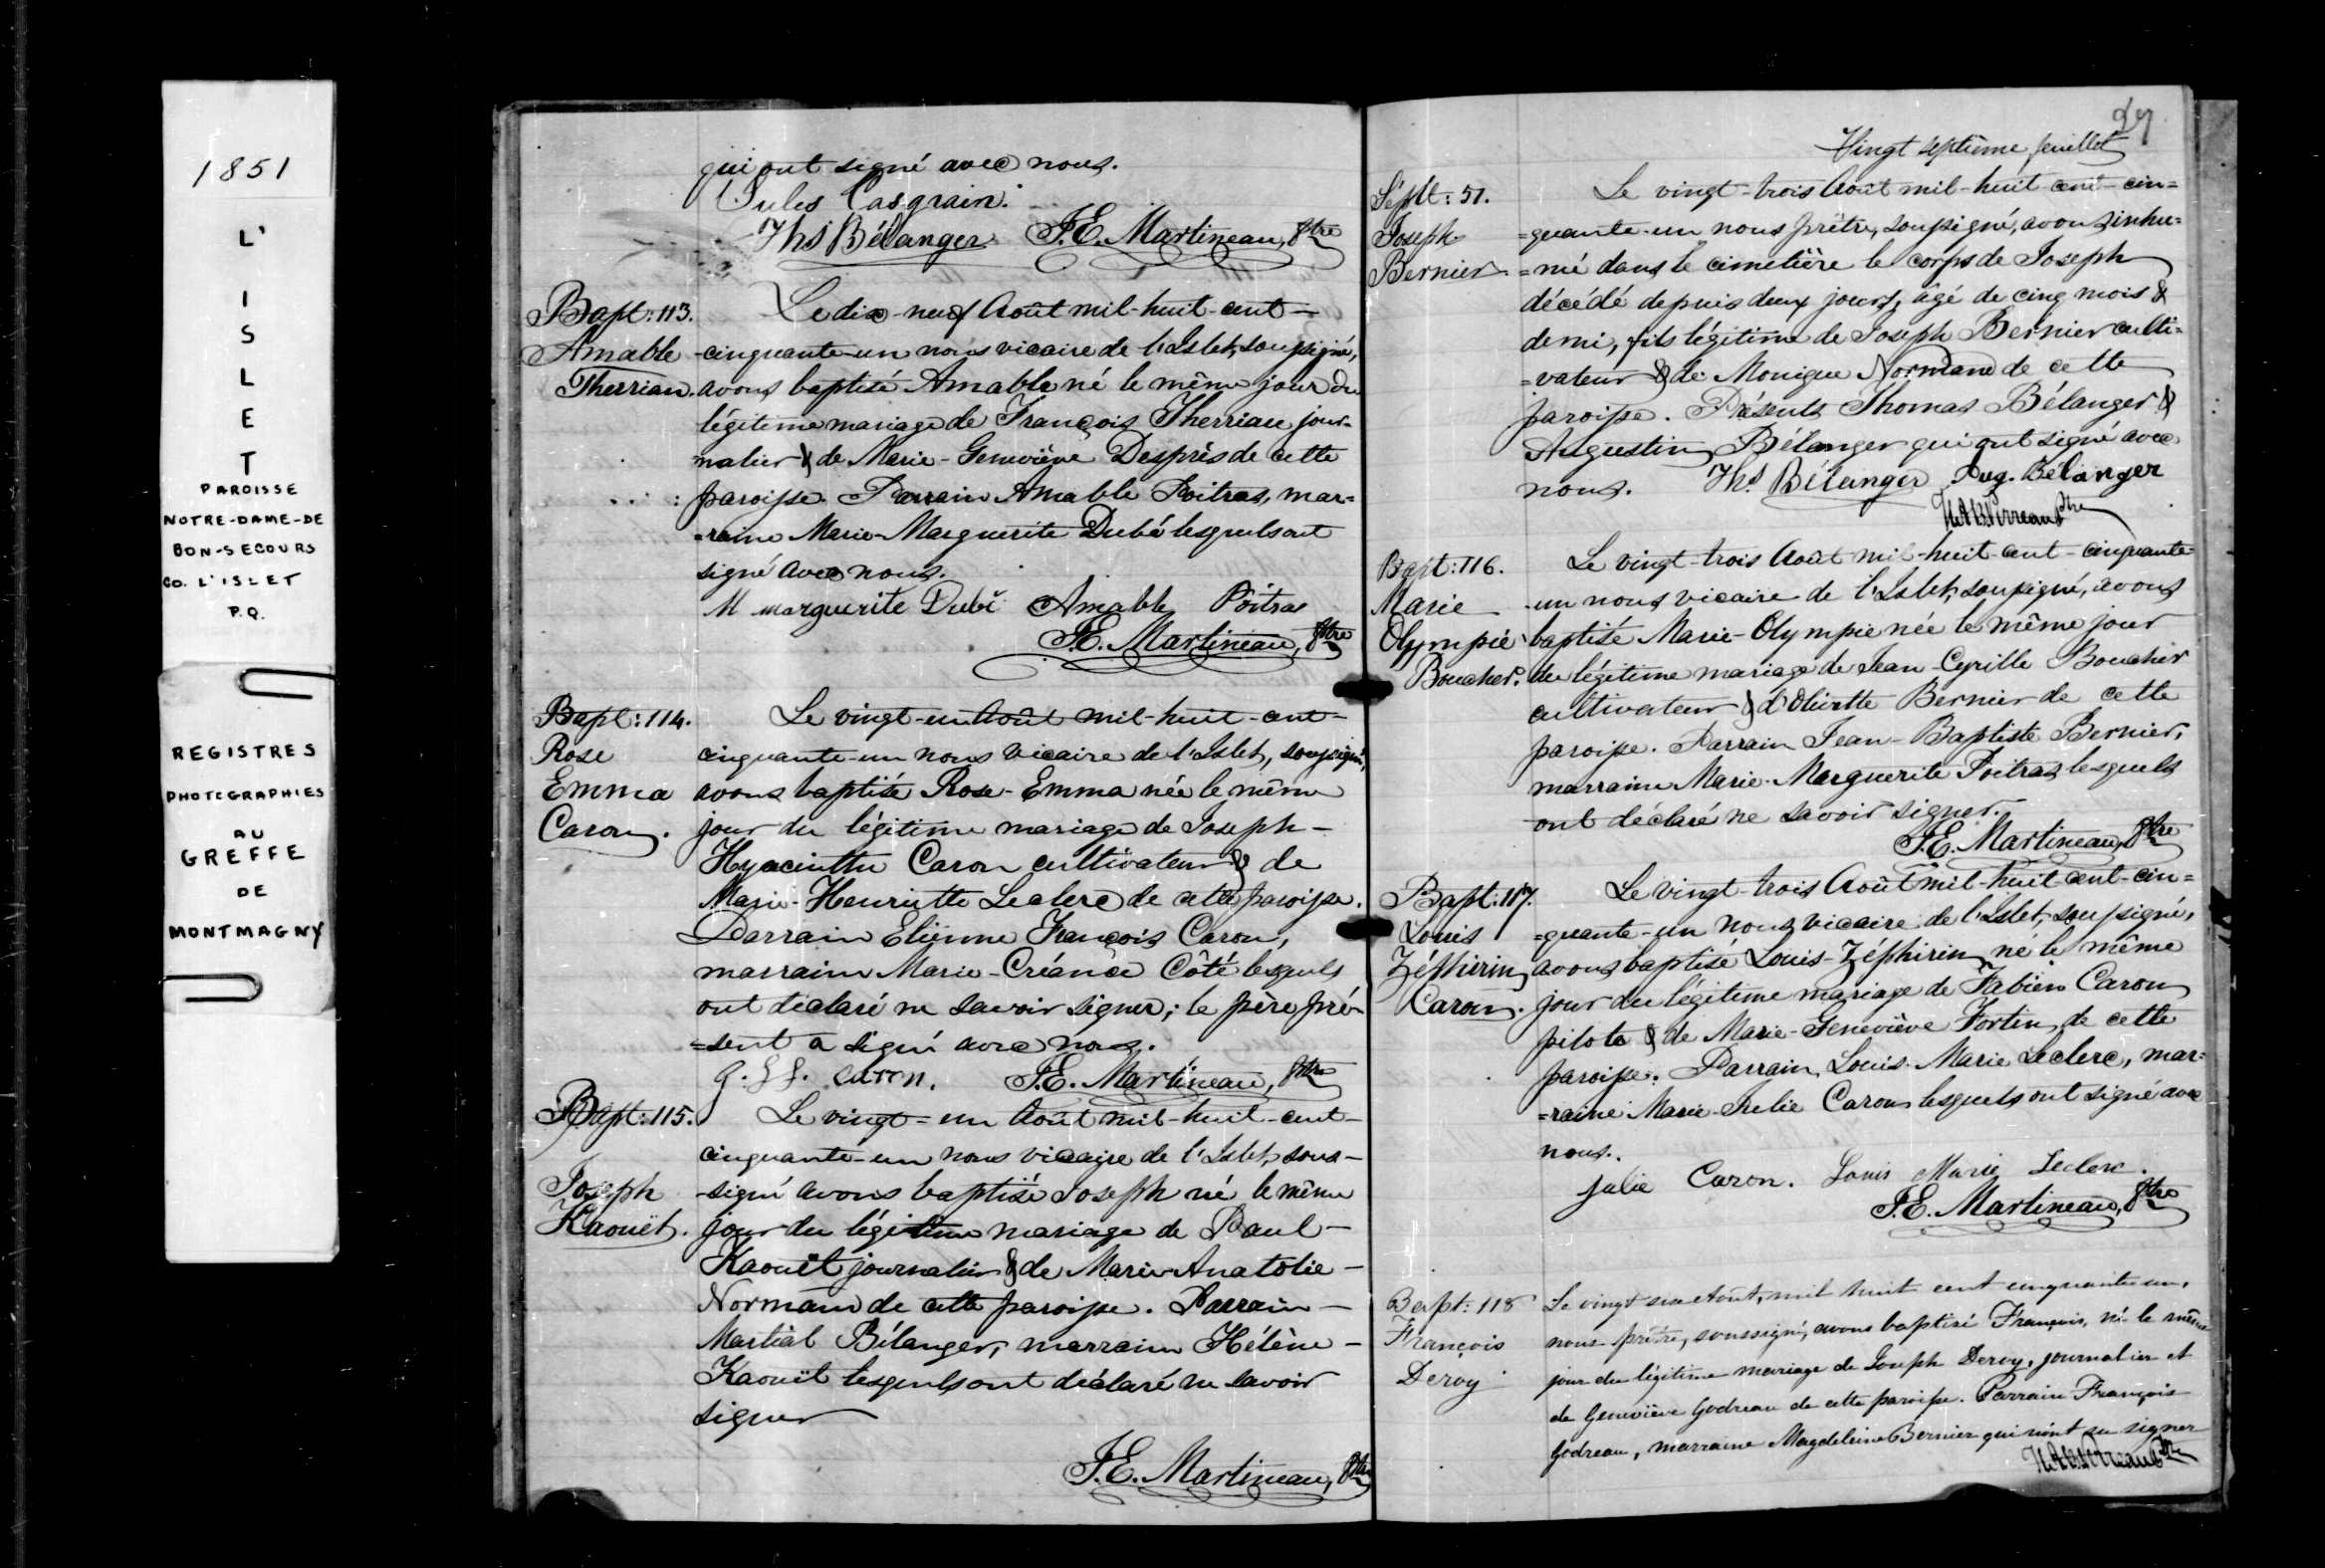 1851
L'
I
S
L
E
T
PAROISSE
NOTRE-DAME-DE
BON-SECOURS
CO. L'ISLET
P.Q.
REGISTRES
PHOTOGRAPHIES
AU
GREFFE
DE
MONTMAGNY
qui ont signé avec nous.
Jules Casgrain.
Ths Bélanger F.E. Martineau, Ptre
Bapt: 113.
Amable
Therrian.
Le dix-neuf Août mil-huit-cent-
cinquante-un nous vicaire de l'Islet, soussigné,
avons baptisé Amable né le même jour du
légitime mariage de François Therriau jour-
nalier & de Marie-Geneviève Després de cette
paroisse. Parrain Amable Poitras, mar=
=raine Marie-Marguerite Dubé lesquels ont
signé avec nous.
M marguerite Dubé Amable Poitras
F.E. Martineau, Ptre
Bapt: 114.
Rose
Emma
Caron.
Le vingt-un Août mil-huit-cent-
cinquante-un nous vicaire de l'Islet, soussigné,
avons baptisé Rose-Emma née le même
jour du légitime mariage de Joseph-
Hyacinthe Caron cultivateur & de
Marie-Henriette Leclerc de cette paroisse.
Parrain Etienne François Caron,
marraine Marie-Créance Côté lesquels
ont déclaré ne savoir signer; le père pré-
=sent a signé avec nous.
caron. F.E. Martineau, Ptre
Bapt: 115.
Joseph
Kaouët.
Le vingt=un Août mil-huit-cent-
cinquante-un nous vicaire de l'Islet, sous-
signé avons baptisé Joseph né le même
jour du légitime mariage de Paul-
Kaouët journalier & de Marie Anatolie-
Normand de cette paroisse. Parrain-
Martial Bélanger, marraine Hélène-
Kaouët lesquels ont déclaré ne savoir
signer
F.E. Martineau, Ptre
27
Vingt septième feuillet
Sépult: 51.
Joseph
Bernier
Le vingt-trois Août mil-huit cent-cin=
=quante-un nous prêtre, soussigné, avons inhu=
=mé dans le cimetière le corps de Joseph
décédé depuis deux jours, âgé de cinq mois &
demi, fils légitime de Joseph Bernier culti=
=vateur & de Monique Normand de cette
paroisse. Présents Thomas Bélanger &
Augustin Bélanger qui ont signé avec
nous. Ths Bélanger Aug. Bélanger
Ptre
Bapt: 116.
Marie
Olympie
Boucher.
Le vingt-trois Août mil-huit-cent-cinquante-
un nous vicaire de l'Islet, soussigné, avons
baptisé Marie-Olympie née le même jour
du légitime mariage de Jean-Cyrille Boucher
cultivateur & d'Oliette Bernier de cette
paroisse. Parrain Jean-Baptiste Bernier,
marraine Marie-Marguerite Poitras lesquels
ont déclaré ne savoir signer.
F.E. Martineau, Ptre
Bapt: 117.
Louis
Zéphirin
Caron.
Le vingt-trois Août mil-huit-cent-cin=
=quante-un nous vicaire de l'Islet, soussigné,
avons baptisé Louis-Zéphirin né le même
jour du légitime mariage de Fabien Caron
pilote & de Marie-Geneviève Fortin de cette
paroisse. Parrain Louis-Marie Leclerc, mar=
=raine Marie-Julie Caron lesquels ont signé avec
nous.
Julie Caron. Louis Marie Leclerc.
F.E. Martineau, Ptre
Bapt: 118
François
Deroy
Le vingt six Août, mil huit cent cinquante un,
nous prêtre, soussigné, avons baptisé François, né le même
jour du légitime mariage de Joseph Deroy, journalier et
de Geneviève Godreau de cette paroisse. Parrain François
Godreau, marraine Magdeleine Bernier qui n'ont su signer
Ptre